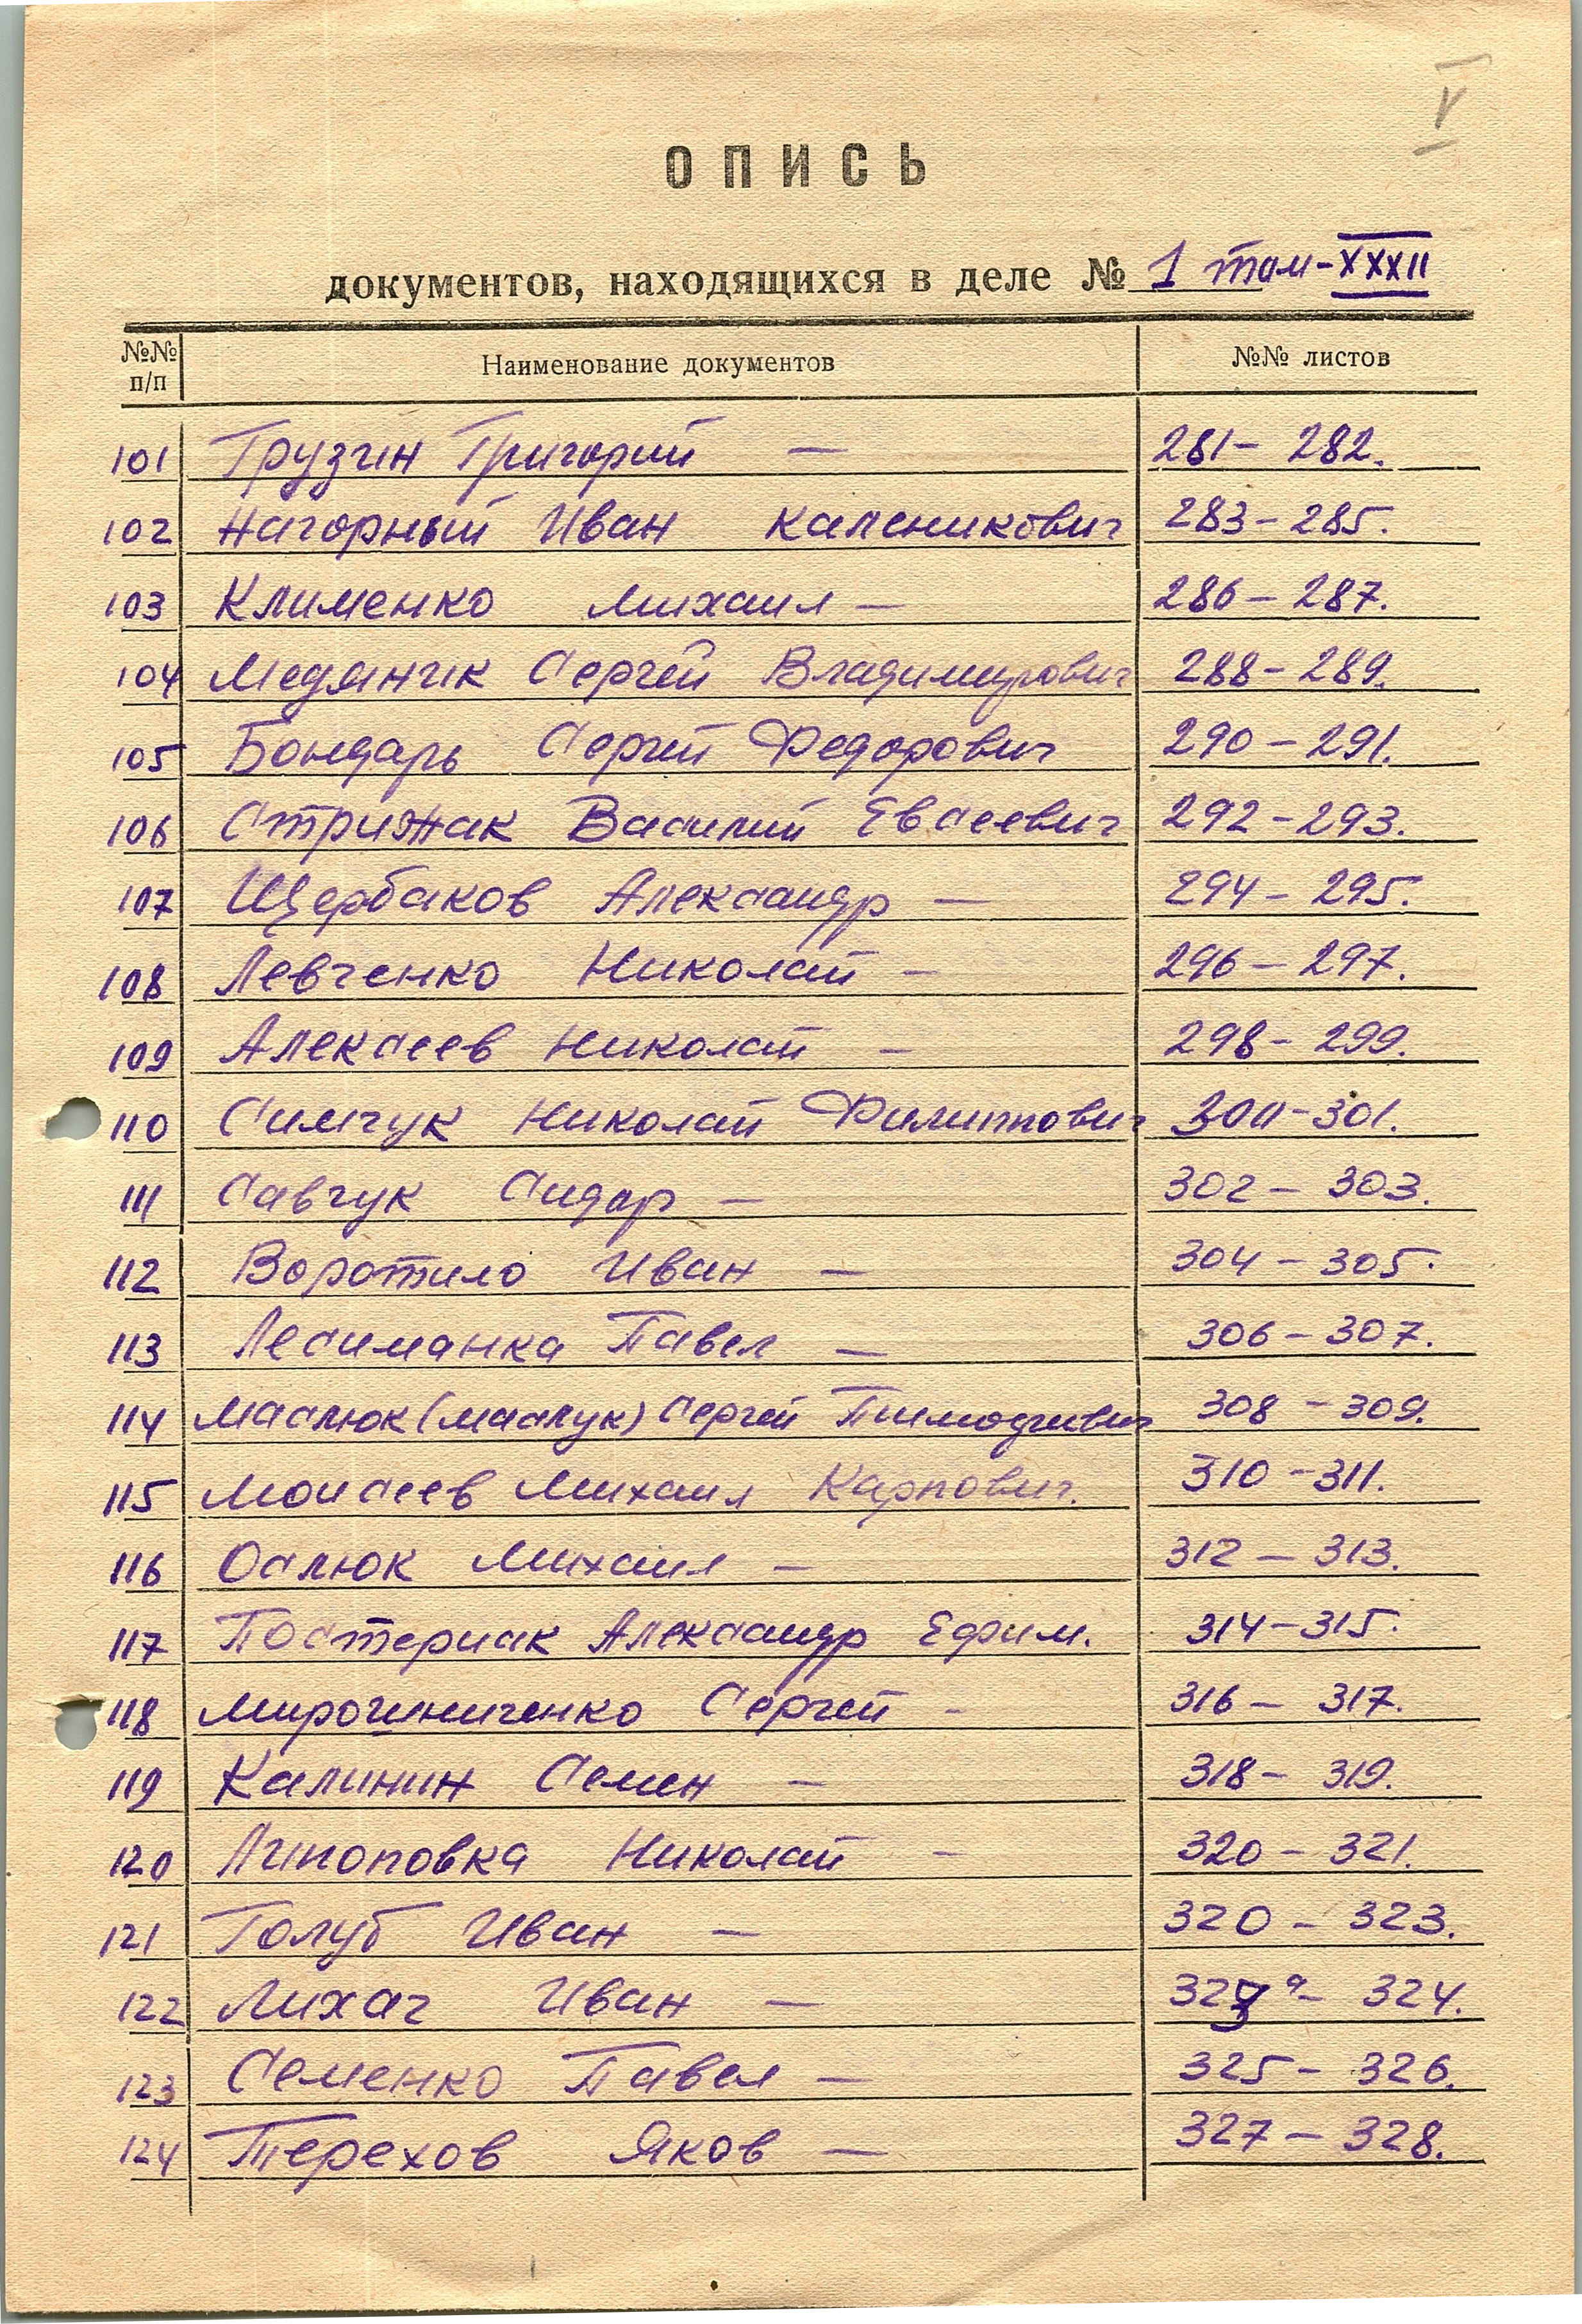 V
ОПИСЬ
документов, находящихся в деле № 1 том-XXXII
№№ п/п Наименование документов №№ листов
101 Грузин Григорий — 281 – 282.
102 Нагорный Иван Каленикович 283 – 285.
103 Клименко Михаил — 286 – 287.
104 Медяник Сергей Владимирович 288 – 289.
105 Бондарь Сергей Федорович 290 – 291.
106 Стрижак Василий Евсеевич 292 – 293.
107 Щербаков Александр — 294 – 295.
108 Левченко Николай — 296 – 297.
109 Алексеев Николай — 298 – 299.
110 Симчук Николай Филиппович 300 – 301.
111 Савчук Сидор — 302 – 303.
112 Воротило Иван — 304 – 305.
113 Лесиманка Павел — 306 – 307.
114 Маслюк (Маслук) Сергей Тимофеевич 308 – 309.
115 Моисеев Михаил Карпович. 310 – 311.
116 Ослюк Михаил — 312 – 313.
117 Постернак Александр Ефим. 314 – 315.
118 Мирошниченко Сергей – 316 – 317.
119 Калинин Семен — 318 – 319.
120 Николай – 320 – 321.
121 Голуб Иван — 320 – 323.
122 Лихач Иван — 323а – 324.
123 Семенко Павел — 325 – 326.
124 Терехов Яков — 327 – 328.